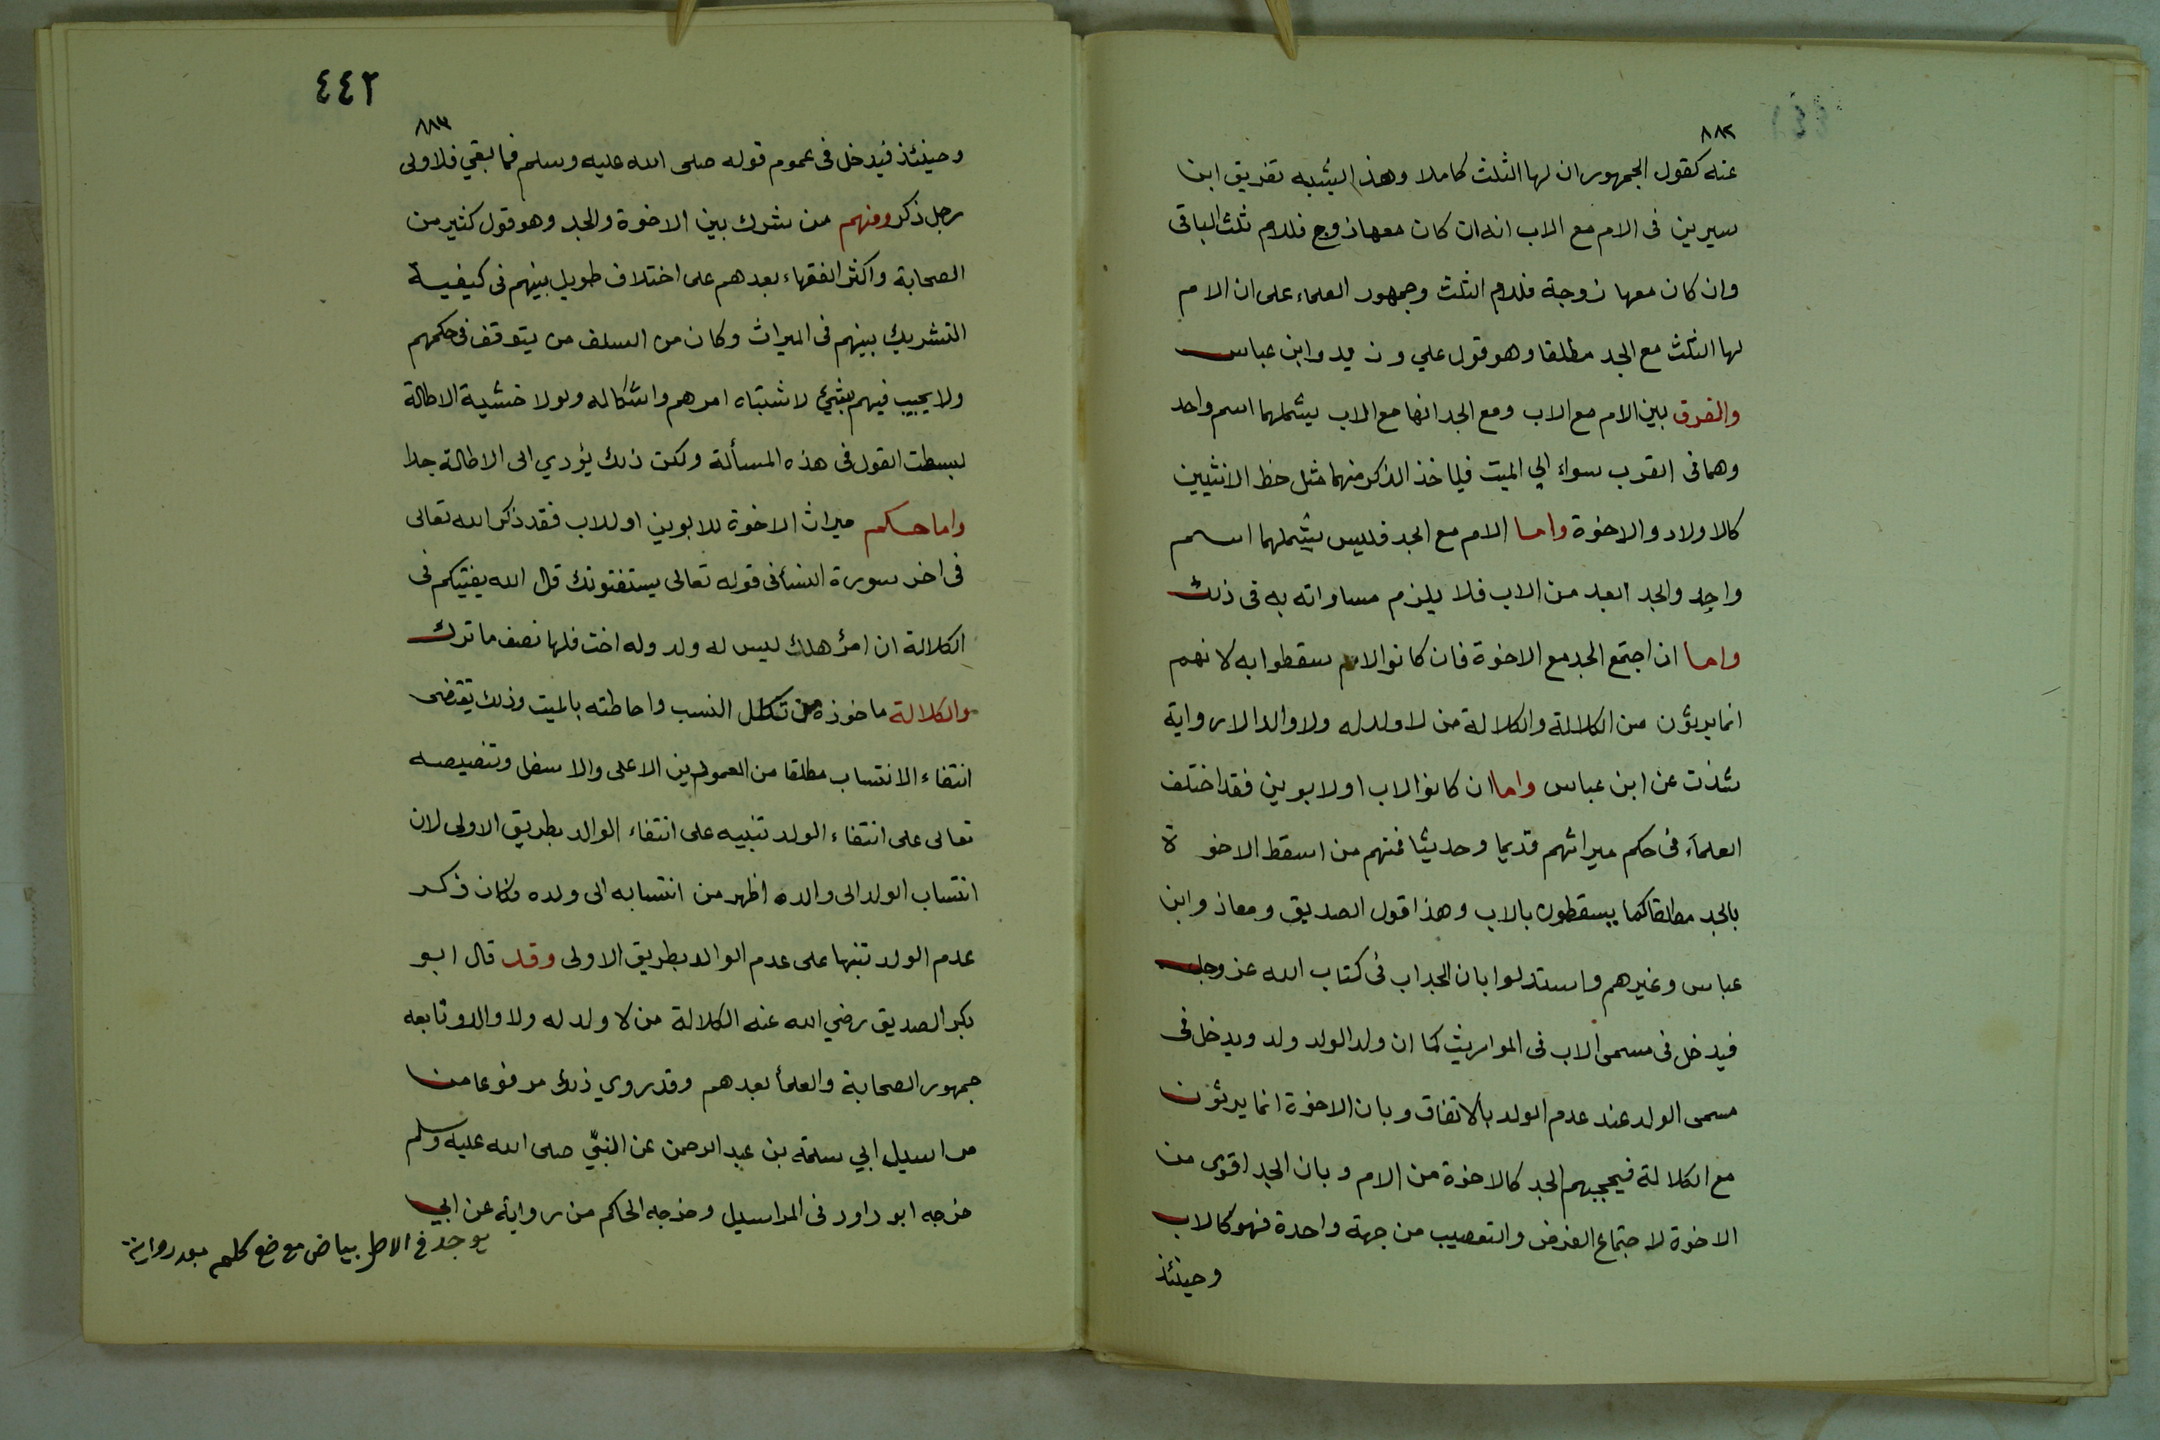 ٨٨٢
عنه كقول الجمهور ان لها الثلث كاملا وهذا يشبه تفريق ابن
سيرين فى الام مع الاب انه ان كان معها زوج فللام ثلث الباقى
وان كان معها زوجة فللام الثلث وجمهور العلماء على ان الام
لها الثلث مع الجد مطلقا وهو قول علي وزيد وابن عباس
والفرق بين الام مع الاب ومع الجد انها مع الاب يشملهما اسم واحد
وهما فى القرب سواء الي الميت فياخذ الذكر منهما مثل حظ الانثيين
كالاولاد والاخوة واما الام مع الجد فليس يشملهما اسم
واحد والجد ابعد من الاب فلا يلزم مساواته به فى ذلك
واما ان اجتمع الجد مع الاخوة فان كانوا لام سقطوا به لانهم
انما يرثون من الكلالة والكلالة من لا ولد له ولا والد الا رواية
شذت عن ابن عباس واما ان كانوا لاب او لابوين فقد اختلف
العلماء فى حكم ميراثهم قديما وحديثا فمنهم من اسقط الاخوة
بالجد مطلقا كما يسقطون بالاب وهذا قول الصديق ومعاذ وابن
عباس وغيرهم واستدلوا بان الجد اب فى كتاب الله عز وجل
فيدخل فى مسمى الاب فى المواريث كما ان ولد الولد ولد ويدخل فى
مسمى الولد عند عدم الولد بالاتفاق وبان الاخوة انما يرثون
مع الكلالة فيحجبهم الجد كالاخوة من الام وبان الجد اقوى من
الاخوة لاجتماع الفرض والتعصيب من جهة واحدة فهو كالاب
وحينئذ
٤٤٢
٨٨٣
وحينئذ فيدخل فى عموم قوله صلى الله عليه وسلم فما بقي فلاولى
رجل ذكر ومنهم من شرك بين الاخوة والجد وهو قول كثير من
الصحابة واكثر الفقهاء بعدهم على اختلاف طويل بينهم فى كيفية
التشريك بينهم فى الميراث وكان من السلف من يتوقف فى حكمهم
ولا يجيب فيهم بشئ لاشتباه امرهم واشكاله ولولا خشية الاطالة
لبسطت القول فى هذه المسألة ولكن ذلك يؤدي الى الاطالة جدا
واما حكم ميراث الاخوة للابوين او للاب فقد ذكر الله تعالى
فى اخر سورة النسأ فى قوله تعالى يستفتونك قل الله يفتيكم فى
الكلالة ان امرؤ هلك ليس له ولد وله اخت فلها نصف ما ترك
والكلالة ماخوذة من تكلل النسب واحاطته بالميت وذلك يقتضى
انتفاء الانتساب مطلقا من العمودين الاعلى والاسفل وتنصيصه
تعالى على انتفاء الولد تنبيه على انتفاء الوالد بطريق الاولى لان
انتساب الولد الى والده اظهر من انتسابه الى ولده فكان ذكر
عدم الولد تنبيها على عدم الوالد بطريق الاولى وقد قال ابو
بكر الصديق رضي الله عنه الكلالة من لا ولد له ولا والد وتابعه
جمهور الصحابة والعلمأ بعدهم وقد روي ذلك مرفوعا من
مراسيل ابي سلمة بن عبد الرحمن عن النبّي صلى الله عليه وسلم
خرجه ابو داود فى المراسيل وخرجه الحاكم من رواية عن ابي
يوجد فى الاصل بياض موضع كلم بعد رواية